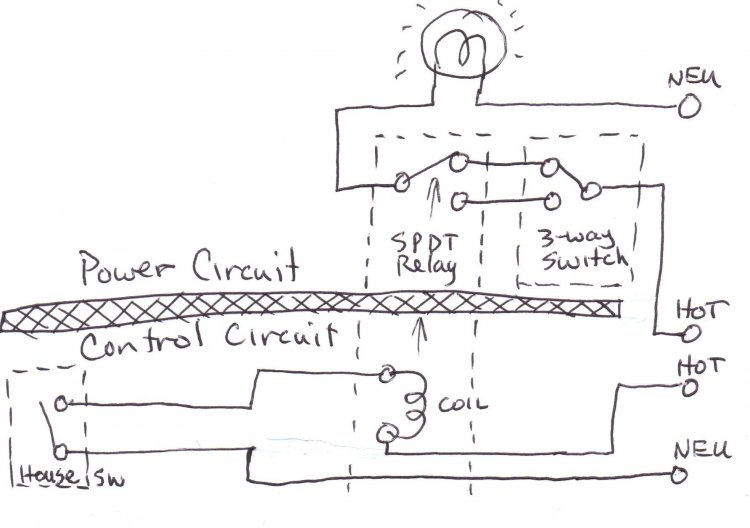 NEU
SPDT
Relay
3-way
Switch
Power Circuit
HOT
Control Circuit
HOT
COIL
House SW
NEU